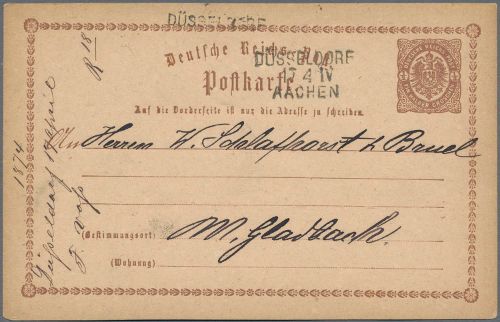 DÜSSELDORF
Deutsche Reichs-Post
DÜSSELDORF
17 4 IV
AACHEN
Postkarte
Auf die Vorderseite ist nur die Adresse zu schreiben.
An Herren W. Schlafhorst & Bruel
(Bestimmungsort:) M. Gladbach.
(Wohnung)
1874
Düsseldorf
R 18